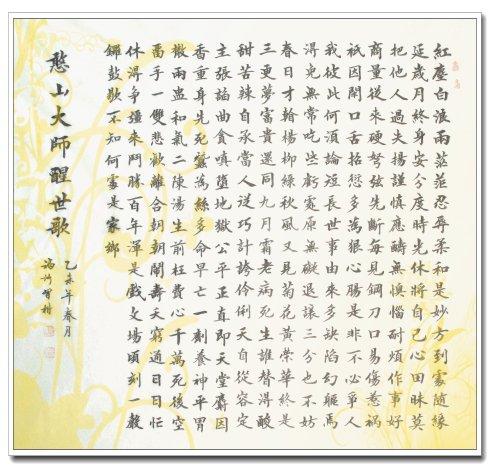 紅塵白浪兩茫茫忍辱柔和是妙方到處隨緣
延歲月終身安分度時光休將自己心田昧莫
把他人過失揚謹慎應酬無懊惱耐煩作事好
商量從來硬弩弦先斷每見鋼刀口易傷惹禍
祇因閒口舌招愆多為狠心腸是非不必爭人
我彼此何須論短長世事由來多缺陷幻軀焉
得免無常吃些虧處原無礙退讓三分也不妨
春日才看楊柳綠秋風又見菊花黃榮華終是
三更夢富貴還同九月霜老病死生誰替得酸
甜苦辣自承當人從巧計誇伶俐天自從容定
主張諂曲貪嗔墮地獄公平正直即天堂麝因
香重身先死蠶為絲多命早亡一劑養神平胃
散兩盅和氣二陳湯生前枉費心千萬死後空
留手一雙悲歡離合朝朝鬧壽夭窮通日日忙
休得爭強來鬥勝百年渾是戲文場頃刻一聲
鑼鼓歇不知何處是家鄉
憨山大師醒世歌
乙未年春月